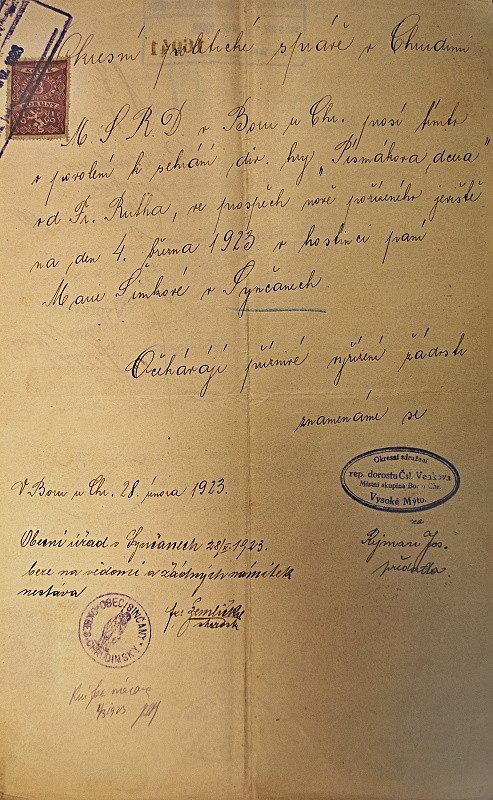 Okresní politické správě v Chrudimi.
M. S. R. D. v Boru u Chr. prosí tímto
o povolení k sehrání div. hry „Písmákova dcera"
od Fr. Rutha, ve prospěch nově pořízeného jeviště
na den 4. března 1923. v hostinci paní
Marie Šimkové v Synčanech.
Očekávájí příznivé vyřízení žádosti
znamenáme se
V Boru u Chr. 28. února 1923.
Okresní sdružení
rep. dorostu Čsl. Venkova
Místní skupina Bor u Chr.
Vysoké Mýto.
Rejman Jos.
předseda.
Obecní úřad v Synčanech 28/II. 1923.
bere na vědomí a žádných námitek
nestává
Zemlička
starosta
OBEC SINČANY
OKRES CHRUDIMSKÝ
1923